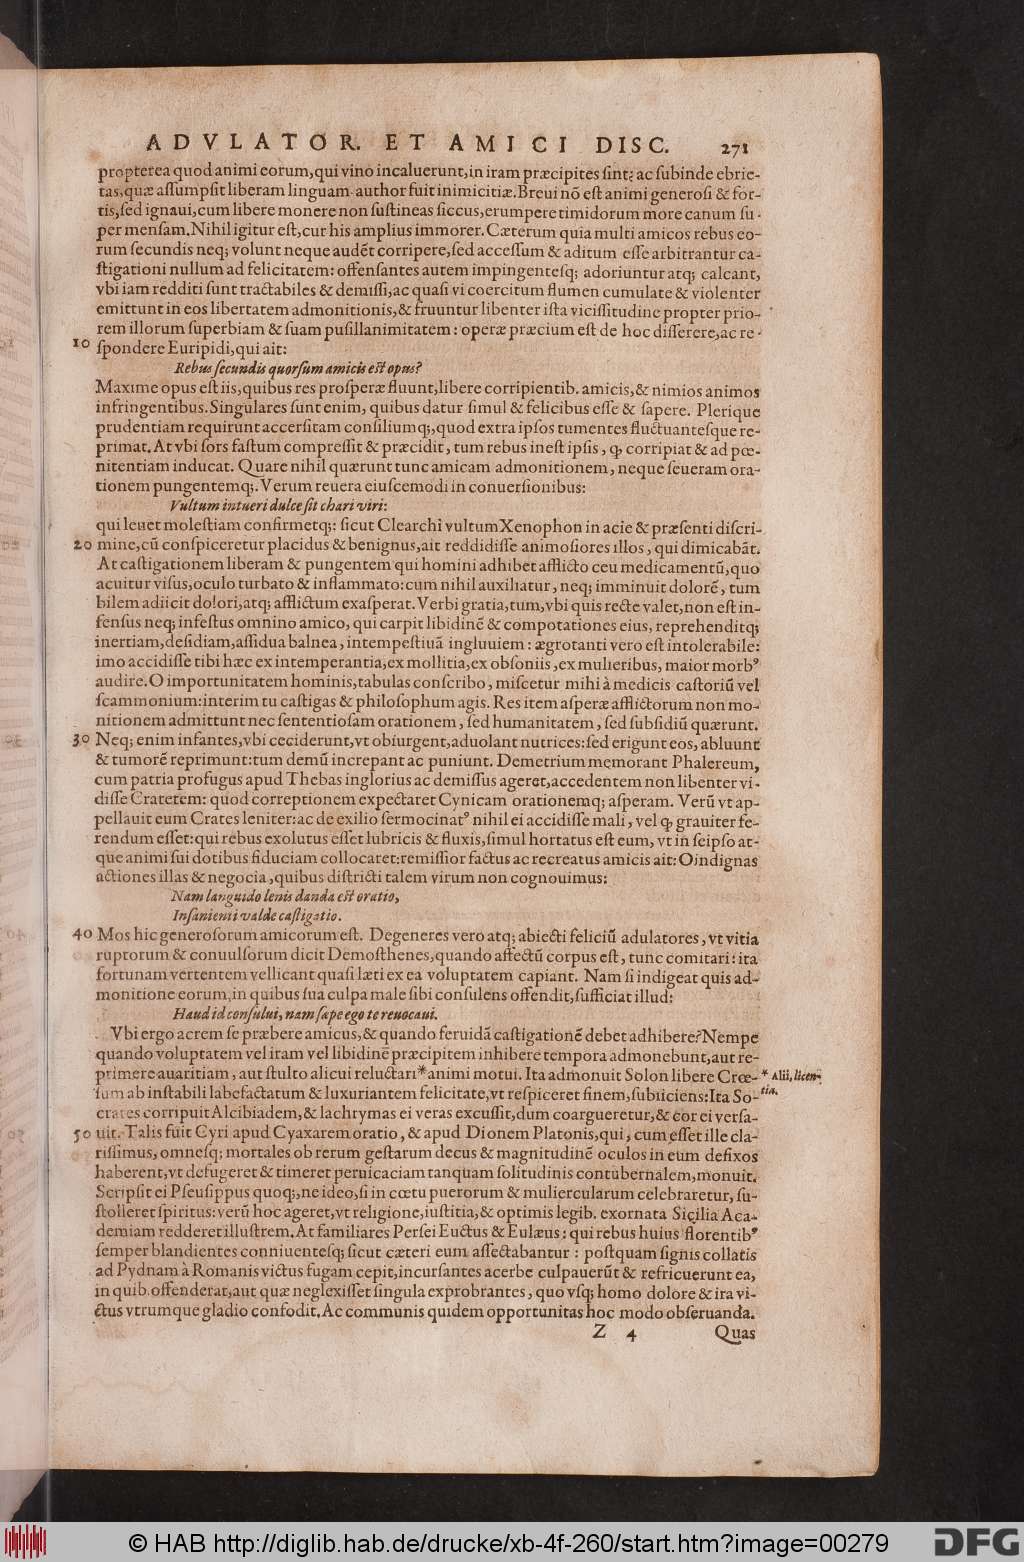 ADVLATOR. ET AMICI DISC. 271
propterea quod animi eorum, qui vino incaluerunt, in iram præcipites sint: ac subinde ebrie-
tas, quæ assumpsit liberam linguam author fuit inimicitiæ. Breui nõ est animi generosi & for-
tis, sed ignaui, cum libere monere non sustineas siccus, erumpere timidorum more canum su-
per mensam. Nihil igitur est, cur his amplius immorer. Cæterum quia multi amicos rebus eo-
rum secundis neq; volunt neque audẽt corripere, sed accessum & aditum esse arbitrantur ca-
stigationi nullum ad felicitatem: offensantes autem impingentesq; adoriuntur atq; calcant,
vbi iam redditi sunt tractabiles & demissi, ac quasi vi coercitum flumen cumulate & violenter
emittunt in eos libertatem admonitionis, & fruuntur libenter ista vicissitudine propter prio-
rem illorum superbiam & suam pusillanimitatem: operæ præcium est de hoc disserere, ac re-
10 spondere Euripidi, qui ait:
Rebus secundis quorsum amicis est opus?
Maxime opus est iis, quibus res prosperæ fluunt, libere corripientib. amicis, & nimios animos
infringentibus. Singulares sunt enim, quibus datur simul & felicibus esse & sapere. Plerique
prudentiam requirunt accersitam consiliumq;, quod extra ipsos tumentes fluctuantesque re-
primat. At vbi sors fastum compressit & præcidit, tum rebus inest ipsis, ꝙ corripiat & ad pœ-
nitentiam inducat. Quare nihil quærunt tunc amicam admonitionem, neque seueram ora-
tionem pungentemq;. Verum reuera eiuscemodi in conuersionibus:
Vultum intueri dulce sit chari viri:
qui leuet molestiam confirmetq;: sicut Clearchi vultum Xenophon in acie & præsenti discri-
20 mine, cũ conspiceretur placidus & benignus, ait reddidisse animosiores illos, qui dimicabãt.
At castigationem liberam & pungentem qui homini adhibet afflicto ceu medicamentũ, quo
acuitur visus, oculo turbato & inflammato: cum nihil auxiliatur, neq; imminuit dolorẽ, tum
bilem adiicit dolori, atq; afflictum exasperat. Verbi gratia, tum, vbi quis recte valet, non est in-
fensus neq; infestus omnino amico, qui carpit libidinẽ & compotationes eius, reprehenditq;
inertiam, desidiam, assidua balnea, intempestiuã ingluuiem: ægrotanti vero est intolerabile:
imo accidisse tibi hæc ex intemperantia, ex mollitia, ex obsoniis, ex mulieribus, maior morbꝰ
audire. O importunitatem hominis, tabulas conscribo, miscetur mihi à medicis castoriũ vel
scammonium: interim tu castigas & philosophum agis. Res item asperæ afflictorum non mo-
nitionem admittunt nec sententiosam orationem, sed humanitatem, sed subsidiũ quærunt.
30 Neq; enim infantes, vbi ceciderunt, vt obiurgent, aduolant nutrices: sed erigunt eos, abluunt
& tumorẽ reprimunt: tum demũ increpant ac puniunt. Demetrium memorant Phalereum,
cum patria profugus apud Thebas inglorius ac demissus ageret, accedentem non libenter vi-
disse Cratetem: quod correptionem expectaret Cynicam orationemq; asperam. Verũ vt ap-
pellauit eum Crates leniter: ac de exilio sermocinatꝰ nihil ei accidisse mali, vel ꝙ grauiter fe-
rendum esset: qui rebus exolutus esset lubricis & fluxis, simul hortatus est eum, vt in seipso at-
que animi sui dotibus fiduciam collocaret: remissior factus ac recreatus amicis ait: O indignas
actiones illas & negocia, quibus districti talem virum non cognouimus:
Nam languido lenis danda est oratio,
Insanienti valde castigatio.
40 Mos hic generosorum amicorum est. Degeneres vero atq; abiecti feliciũ adulatores, vt vitia
ruptorum & conuulsorum dicit Demosthenes, quando affectũ corpus est, tunc comitari: ita
fortunam vertentem vellicant quasi læti ex ea voluptatem capiant. Nam si indigeat quis ad-
monitione eorum, in quibus sua culpa male sibi consulens offendit, sufficiat illud:
Haud id consului, nam sæpe ego te reuocaui.
Vbi ergo acrem se præbere amicus, & quando feruidã castigationẽ debet adhibere? Nempe
quando voluptatem vel iram vel libidinẽ præcipitem inhibere tempora admonebunt, aut re-
primere auaritiam, aut stulto alicui reluctari * animi motui. Ita admonuit Solon libere Crœ- * Alii, licen-
sum ab instabili labefactatum & luxuriantem felicitate, vt respiceret finem, subiiciens: Ita So- tia.
crates corripuit Alcibiadem, & lachrymas ei veras excussit, dum coargueretur, & cor ei versa-
50 uit. Talis fuit Cyri apud Cyaxarem oratio, & apud Dionem Platonis, qui, cum esset ille cla-
rissimus, omnesq; mortales ob rerum gestarum decus & magnitudinẽ oculos in eum defixos
haberent, vt defugeret & timeret peruicaciam tanquam solitudinis contubernalem, monuit.
Scripsit ei Pseusippus quoq;, ne ideo, si in cœtu puerorum & muliercularum celebraretur, su-
stolleret spiritus: verũ hoc ageret, vt religione, iustitia, & optimis legib. exornata Sicilia Aca-
demiam redderet illustrem. At familiares Persei Euctus & Eulæus: qui rebus huius florentibꝰ
semper blandientes conniuentesq; sicut cæteri eum assectabantur: postquam signis collatis
ad Pydnam à Romanis victus fugam cepit, incursantes acerbe culpauerũt & refricuerunt ea,
in quib. offenderat, aut quæ neglexisset singula exprobrantes, quo vsq; homo dolore & ira vi-
ctus vtrumque gladio confodit. Ac communis quidem opportunitas hoc modo obseruanda.
Z 4 Quas
© HAB http://diglib.hab.de/drucke/xb-4f-260/start.htm?image=00279
DFG